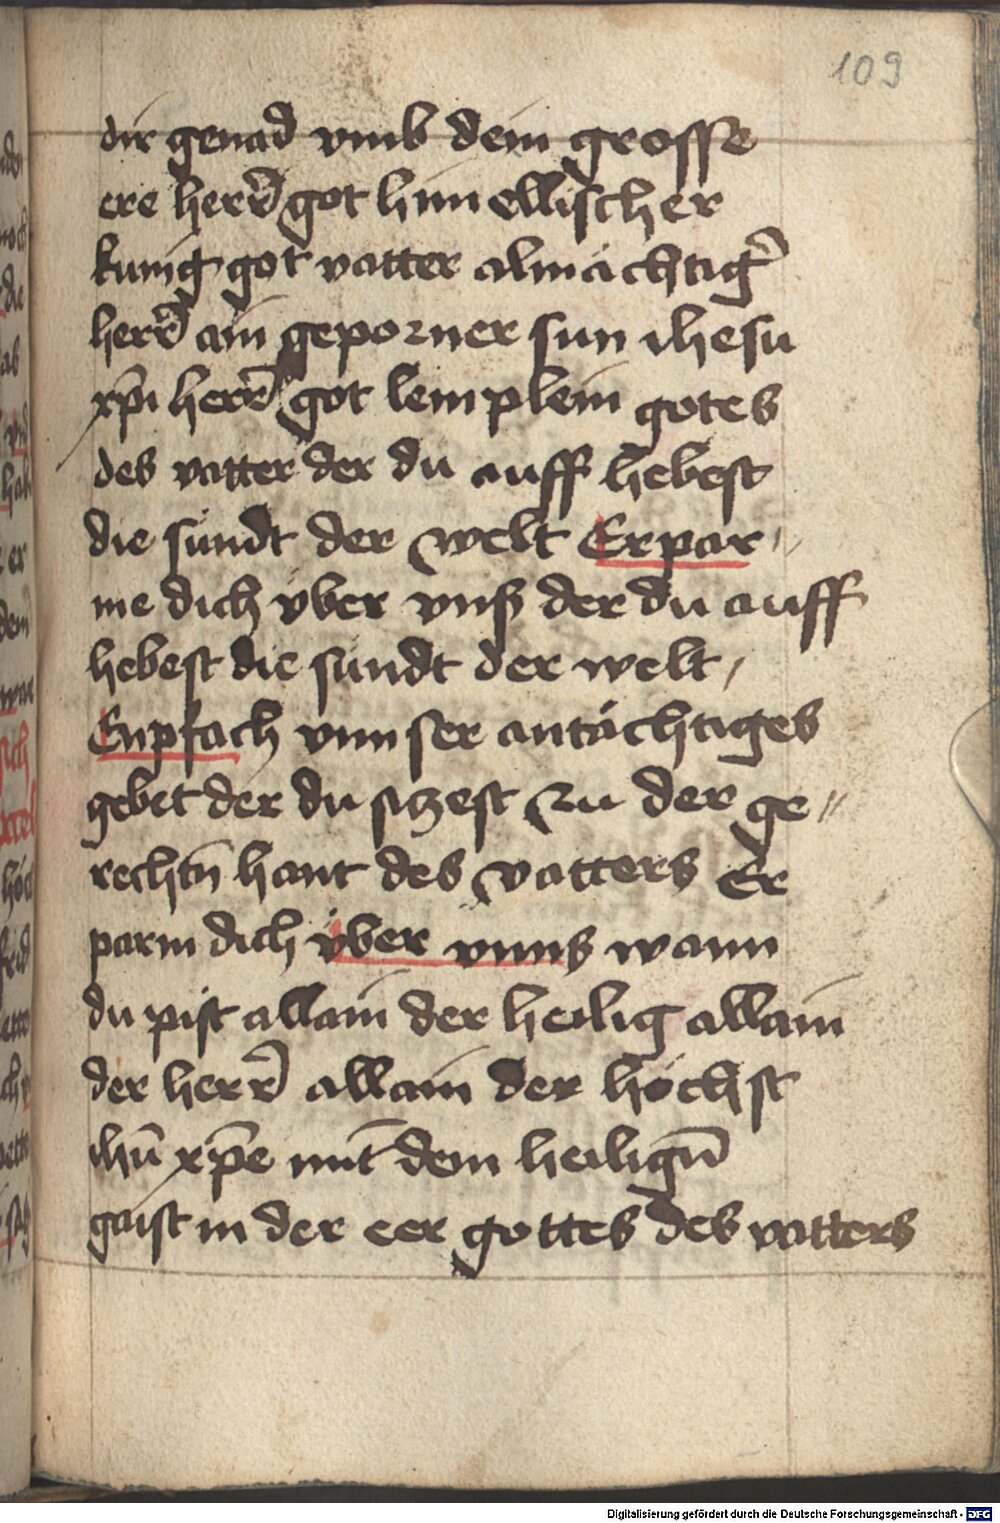 109
dir genad vmb dein grosse
ere herr̄ got himellischer
kunig got vatter almächtigr̄
herr̄ ain geporner sun ihesu
xp̄i herr̄ got lemplein gotes
des vatter der du auff hebest
die sündt der welt Erpar//
me dich vber vnß der du auff
hebest die sündt der welt /
Enpfach vnnser antächtiges
gebet der du siczest zu der ge//
rechtn̄ hant des vatters Er
parm dich vber vnns wann
du pist allain der heilig allain
der herr̄ allain der höchst
ihū xp̄e mit dem heilign̄
gaist in der eer gottes des vatters
Digitalisierung gefördert durch die Deutsche Forschungsgemeinschaft - DFG